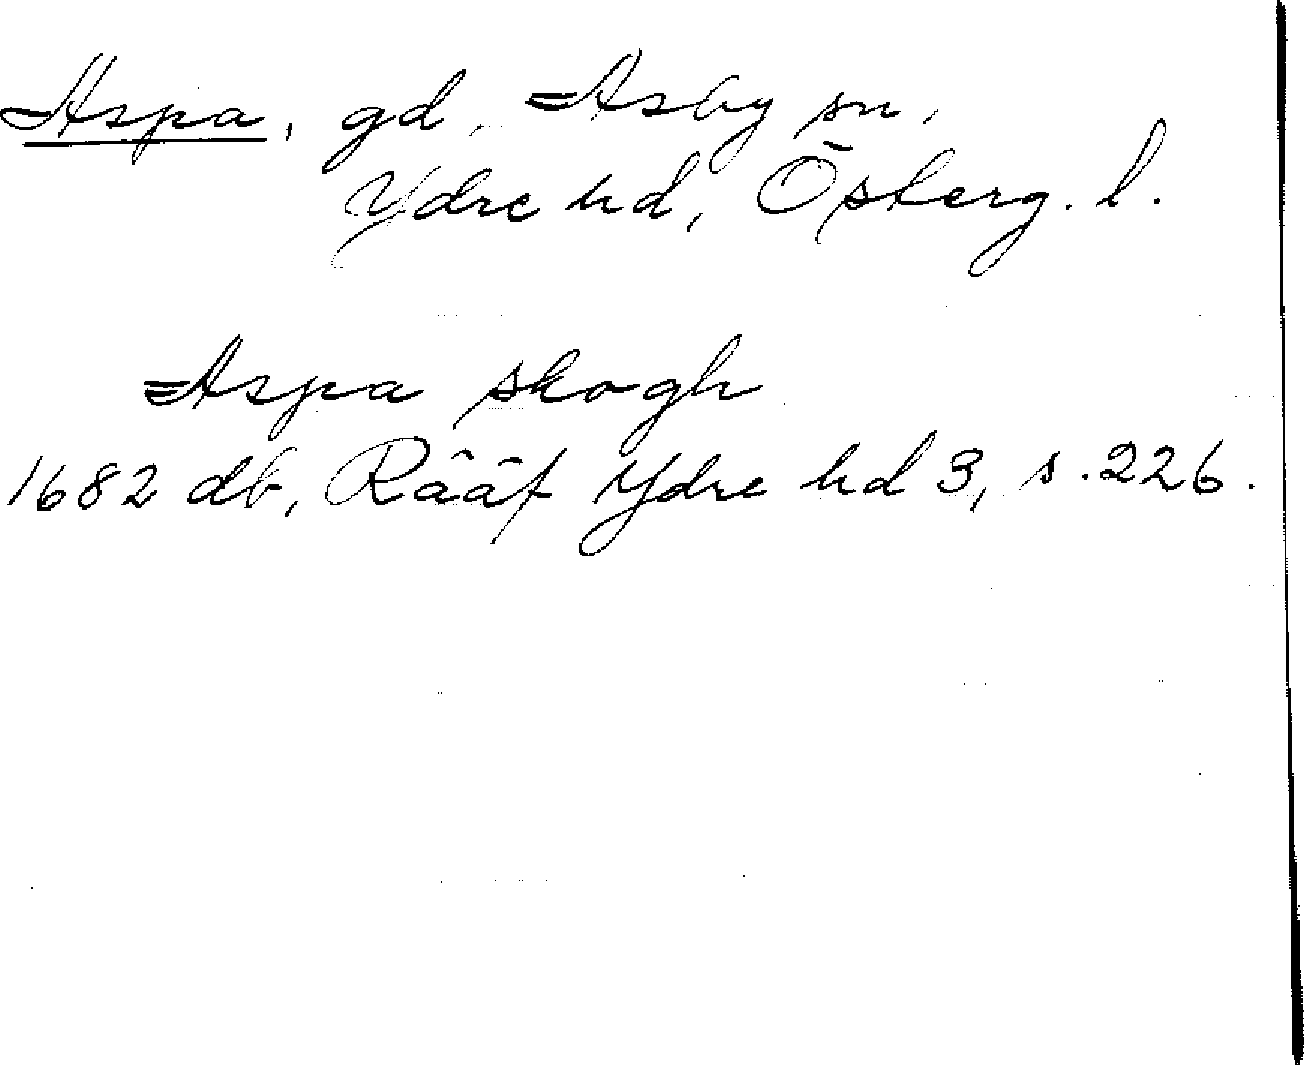 Aspa, gd, Asby sn,
Ydre hd, Österg. l.
Aspa skogh
1682 db, Rääf Ydre hd 3, s. 226.